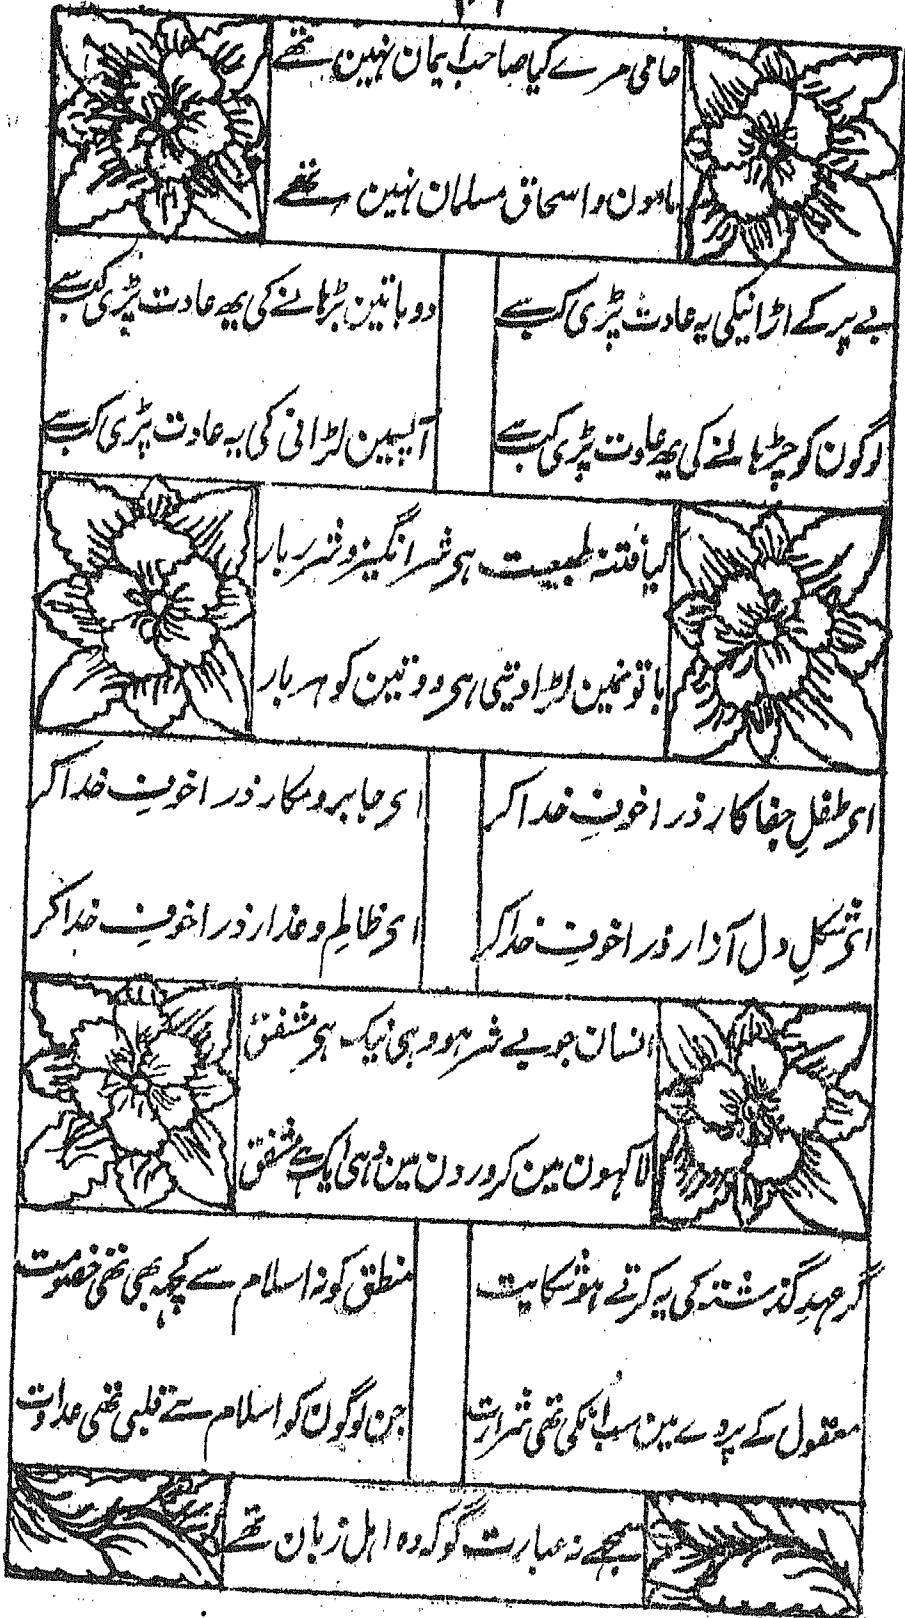 حامی مرے کیا صاحب ایمان نہین تھے
مامون و اسحاق مسلمان نہین تھے
بے پر کے اڑانیکی یہ عادت پڑی کب سے
دو باتین بڑہانے کی یہ عادت پڑی کب سے
لوگون کو چڑہانے کی یہ عادت پڑی کب سے
آپسمین لڑانی کی یہ عادت پڑی کب سے
کیا فتنہ طبیعت ہی شر انگیز و شرر بار
باتونمین لڑا دیتی ہی دو تین کو ہر بار
ای طفلِ جفا کار ذرا خوفِ خدا کر
ای جابر و مکار ذرا خوفِ خدا کر
ای شکلِ دل آزار ذرا خوفِ خدا کر
ای ظالم و غدار ذرا خوفِ خدا کر
انسان جو بے شر ہو وہی نیک ہی مشفق
لاکہون مین کرورون مین وہی ایک ہے مشفق
گر عہدِ گذشتہ کی یہ کرتے ہو شکایت
منطق کو نہ اسلام سے کچھ بھی تھی خصومت
معقول کے پردے مین سب انکی تھی شرارت
جن لوگون کو اسلام سے قلبی تھی عداوت
سمجھے نہ عبارت گو کہ وہ اہل زبان تھے